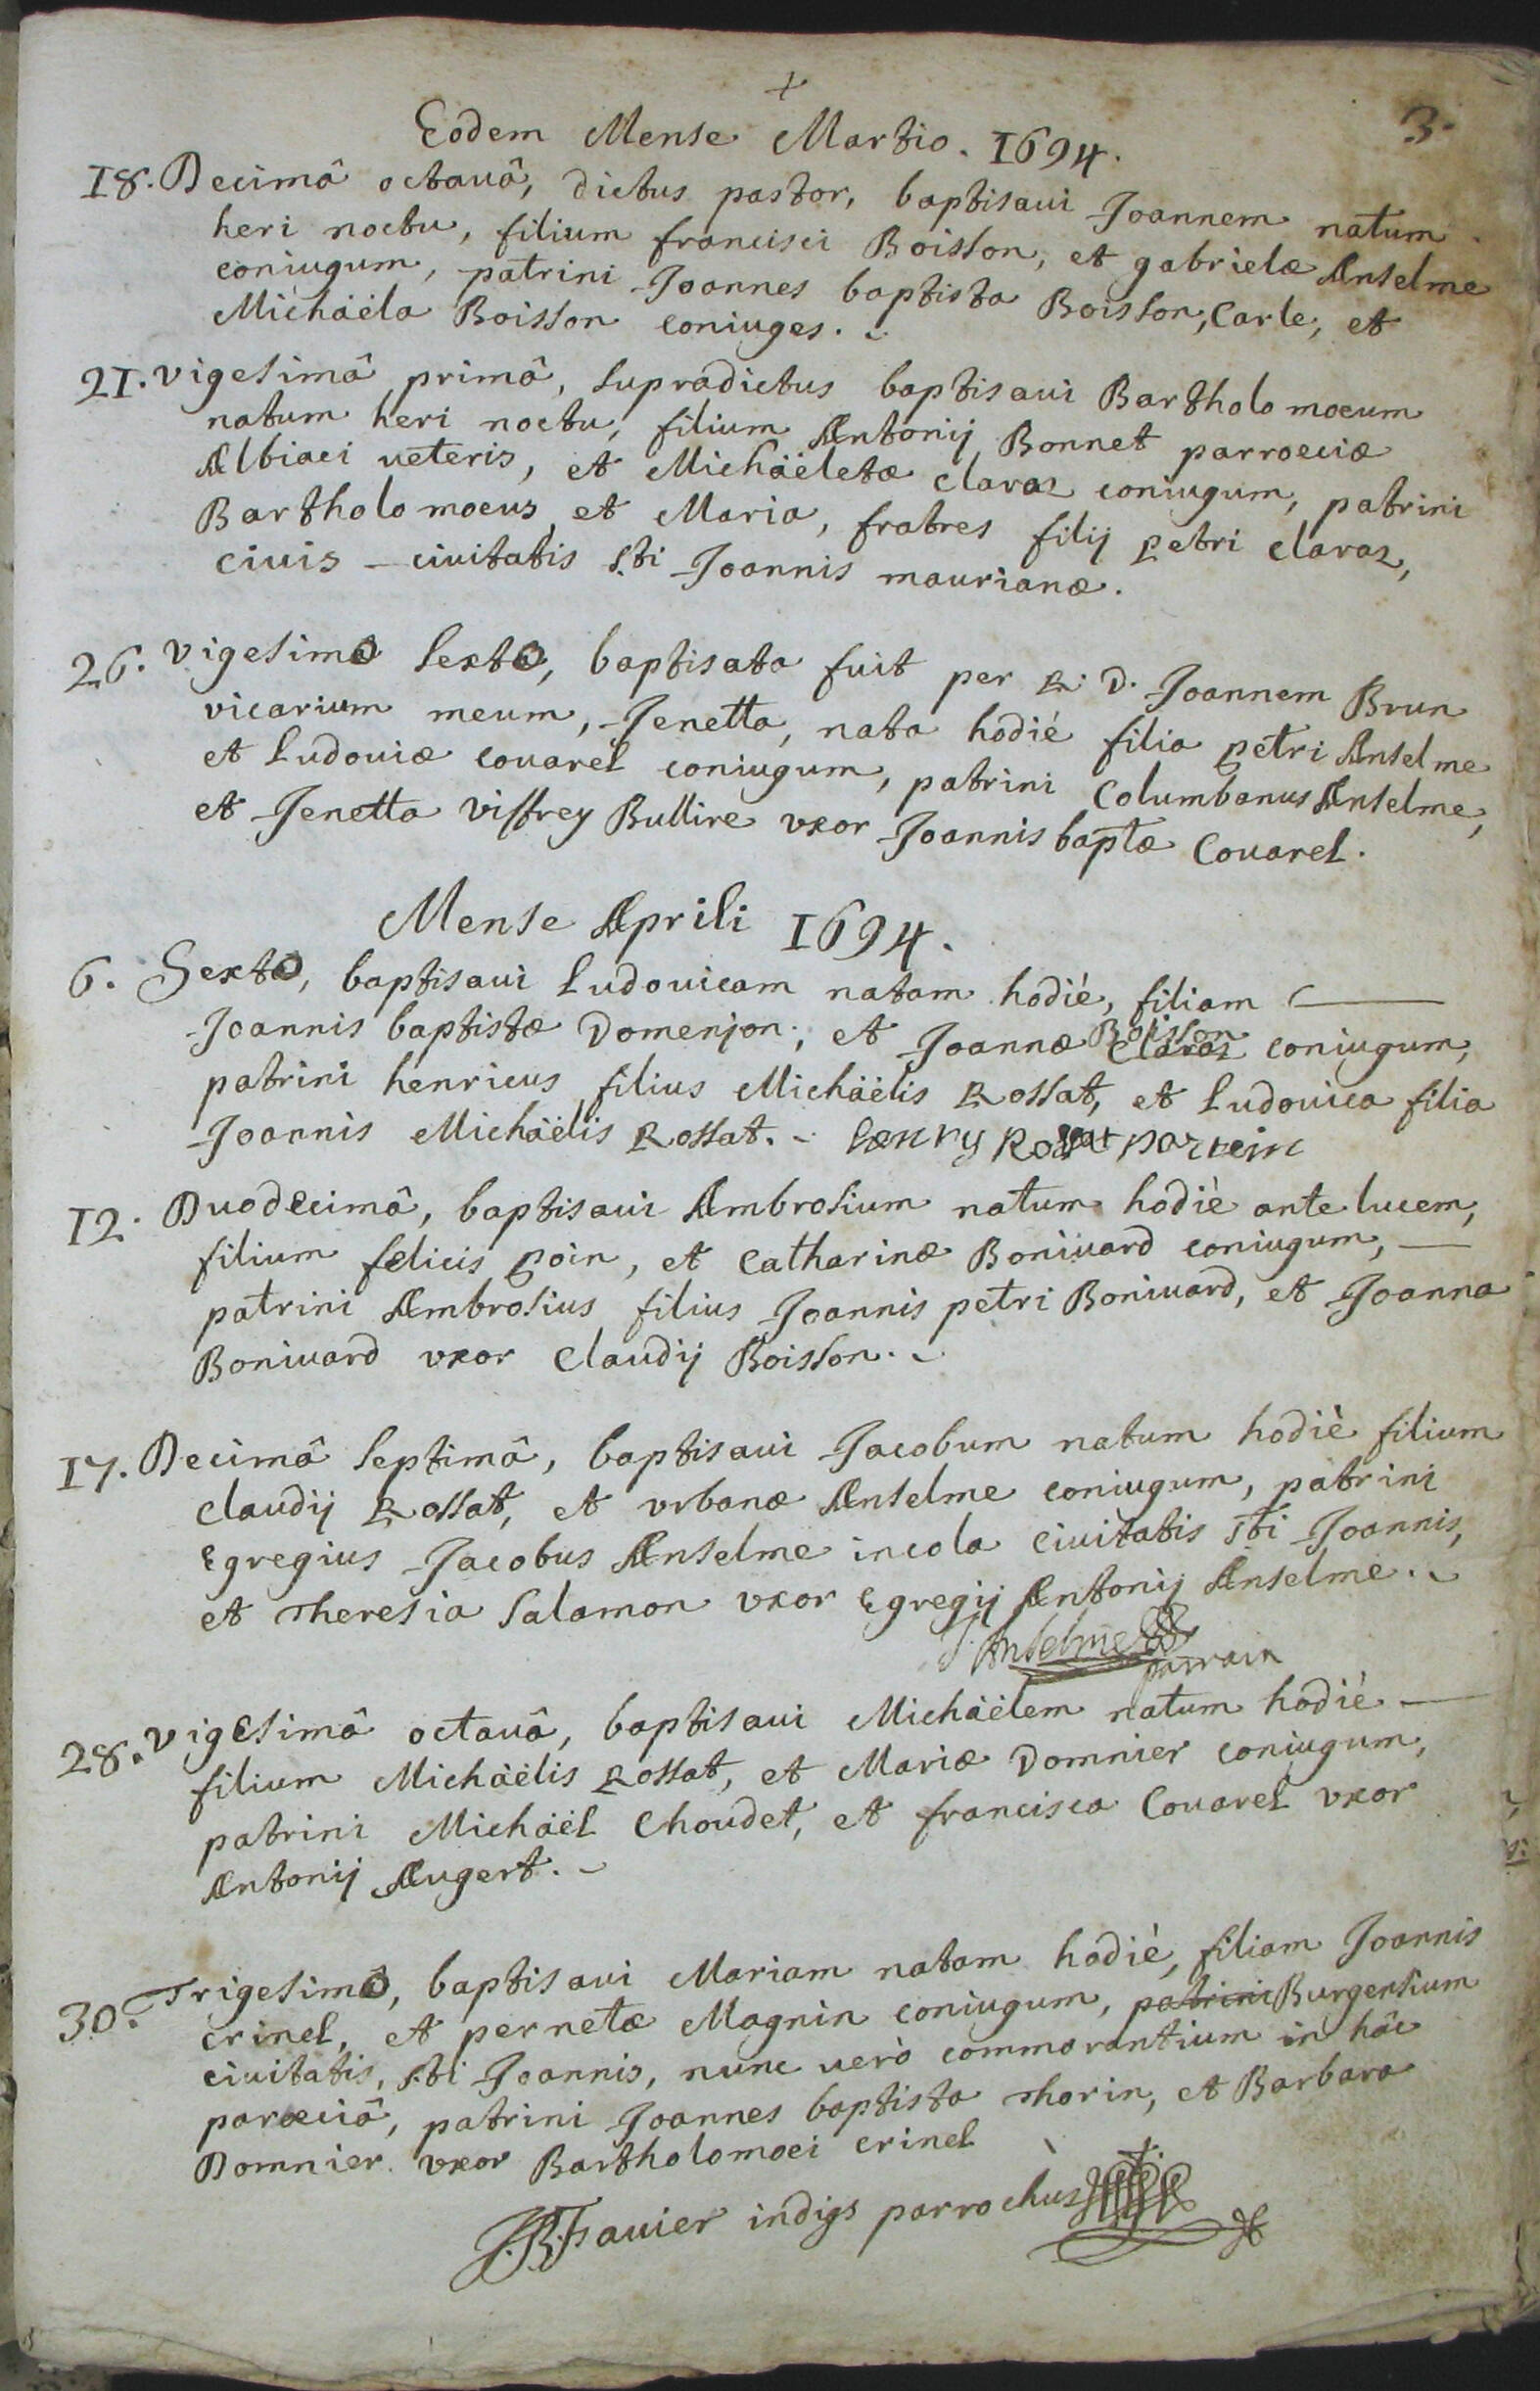 +
3.
Eodem Mense Martio. 1694.
18. Decimâ octauâ, dictus pastor, baptisaui Joannem natum
heri noctu, filium francisci Boisson, et gabrielæ Anselme
coniugum, patrini Joannes baptista Boisson, Carle, et
Michäéla Boisson coniuges.
21. vigesimâ primâ, supradictus baptisaui Bartholomoeum
natum heri noctu, filium Antonij Bonnet parroeciæ
Albiaci ueteris, et Michäéletæ claraz coniugum, patrini
Bartholomoeus et Maria, fratres filij petri claraz,
ciuis ciuitatis sti Joannis maurianæ.
26. vigesimo sexto, baptisata fuit per R. D. Joannem Brun
vicarium meum, Jenetta, nata hodié filia petri Anselme
et Ludouiæ couarel coniugum, patrini Columbanus Anselme,
et Jenetta viffrey Bullire vxor Joannis baptæ Couarel.
Mense Aprili 1694.
6. Sexto, baptisaui Ludouicam natam hodié, filiam
Joannis baptistæ Domenjon, et Joannæ Claraz Boisson coniugum,
patrini henricus filius Michäélis Rossat, et Ludouica filia
Joannis Michäélis Rossat. Henry Rossat parrein
12. Duodecimâ, baptisaui Ambrosium natum hodiè ante lucem,
filium felicis poin, et Catharinæ Boniuard coniugum,
patrini Ambrosius filius Joannis petri Boniuard, et Joanna
Boniuard vxor Claudij Boisson.
17. Decimâ septimâ, baptisaui Jacobum natum hodiè filium
claudij Rossat, et vrbanæ Anselme coniugum, patrini
Egregius Jacobus Anselme incola ciuitatis sti Joannis,
et theresia Salamon vxor Egregij Antonij Anselme.
J. Anselme parrain
28. vigesimâ octauâ, baptisaui Michäélem natum hodié
filium Michäélis Rossat, et Mariæ Domnier coniugum,
patrini Michäél Choudet, et francisca Couarel vxor
Antonij Augert.
30. Trigesimo, baptisaui Mariam natam hodiè, filiam Joannis
crinel, et pernetæ Magnin coniugum, patrini Burgensium
ciuitatis, sti Joannis, nunc uerò commorantium in hâc
paroeciâ, patrini Joannes baptista thorin, et Barbara
Domnier vxor Bartholomoei crinel
J.B. Fauier indigs parrochus